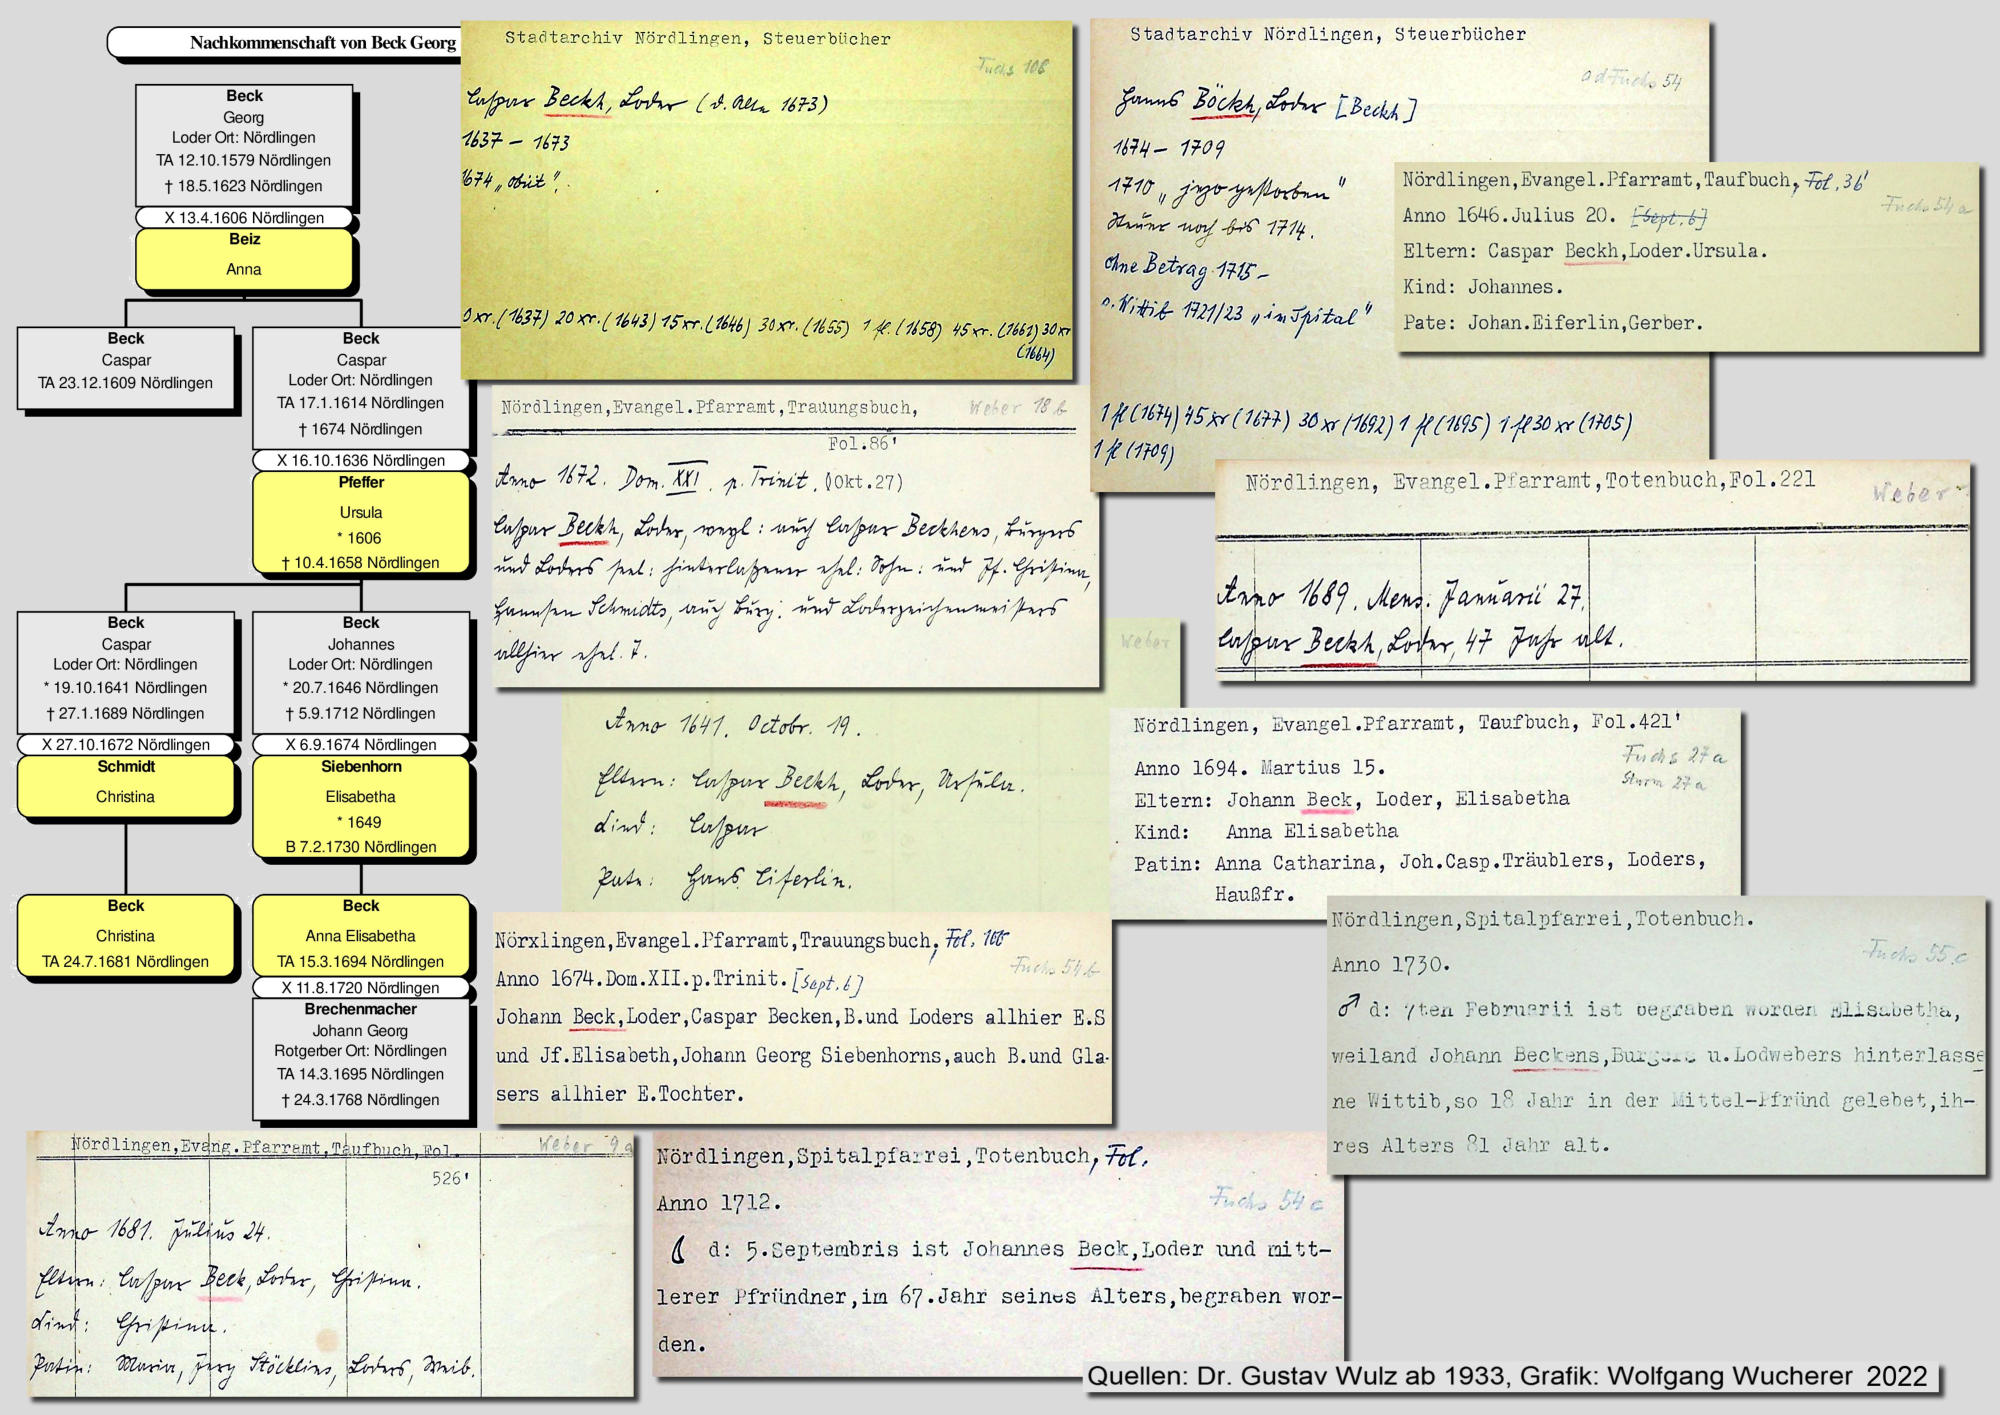 Nachkommenschaft von Beck Georg
Beck
Georg
Loder Ort: Nördlingen
TA 12.10.1579 Nördlingen
† 18.5.1623 Nördlingen
X 13.4.1606 Nördlingen
Beiz
Anna
Beck
Caspar
TA 23.12.1609 Nördlingen
Beck
Caspar
Loder Ort: Nördlingen
TA 17.1.1614 Nördlingen
† 1674 Nördlingen
X 16.10.1636 Nördlingen
Pfeffer
Ursula
* 1606
† 10.4.1658 Nördlingen
Beck
Caspar
Loder Ort: Nördlingen
* 19.10.1641 Nördlingen
† 27.1.1689 Nördlingen
X 27.10.1672 Nördlingen
Schmidt
Christina
Beck
Johannes
Loder Ort: Nördlingen
* 20.7.1646 Nördlingen
† 5.9.1712 Nördlingen
X 6.9.1674 Nördlingen
Siebenhorn
Elisabetha
* 1649
B 7.2.1730 Nördlingen
Beck
Christina
TA 24.7.1681 Nördlingen
Beck
Anna Elisabetha
TA 15.3.1694 Nördlingen
X 11.8.1720 Nördlingen
Brechenmacher
Johann Georg
Rotgerber Ort: Nördlingen
TA 14.3.1695 Nördlingen
† 24.3.1768 Nördlingen
Stadtarchiv Nördlingen, Steuerbücher
Fuchs 108
Caspar Beckh, Loder (d. Alte 1673)
1637 – 1673
1674 „obiit".
0 xr. (1637) 20 xr. (1643) 15 xr. (1646) 30 xr. (1655) 1 fl. (1658) 45 xr. (1661) 30 xr
(1664)
Stadtarchiv Nördlingen, Steuerbücher
ad Fuchs 54
Hanns Böckh, Loder [Beckh]
1674 – 1709
1710 „jezo gestorben"
Steuer noch bis 1714.
ohne Betrag 1715 –
s. Wittib 1721/23 „im Spital"
1 fl (1674) 45 xr (1677) 30 xr (1692) 1 fl (1695) 1 fl 30 xr (1705)
1 fl (1709)
Nördlingen,Evangel.Pfarramt,Taufbuch, Fol. 36'
Fuchs 54 a
Anno 1646.Julius 20. [Sept. 6]
Eltern: Caspar Beckh,Loder.Ursula.
Kind: Johannes.
Pate: Johan.Eiferlin,Gerber.
Nördlingen,Evangel.Pfarramt,Trauungsbuch, Weber 18 b
Fol.86'
Anno 1672. Dom. XXI. p. Trinit. (Okt.27)
Caspar Beckh, Loder, weyl: auch Caspar Beckhens, Burgers
und Loders seel: hinterlaßener ehel: Sohn: und Jf. Christina,
Hannsen Schmidts, auch Burg: und Loderzeichenmeisters
allhier ehel. T.
Nördlingen, Evangel.Pfarramt,Totenbuch,Fol.221
Weber
Anno 1689. Mens. Januarii 27.
Caspar Beckh, Loder, 47 Jahr alt.
Weber
Anno 1641. Octobr. 19.
Eltern: Caspar Beckh, Loder, Ursula.
Kind: Caspar
Pate: Hans Eiferlin.
Nördlingen, Evangel.Pfarramt, Taufbuch, Fol.421'
Fuchs 27 a
Sturm 27 a
Anno 1694. Martius 15.
Eltern: Johann Beck, Loder, Elisabetha
Kind: Anna Elisabetha
Patin: Anna Catharina, Joh.Casp.Träublers, Loders,
Haußfr.
Nörxlingen,Evangel.Pfarramt,Trauungsbuch, Fol. 166
Fuchs 54 b
Anno 1674.Dom.XII.p.Trinit. [Sept. 6]
Johann Beck,Loder,Caspar Becken,B.und Loders allhier E.S
und Jf.Elisabeth,Johann Georg Siebenhorns,auch B.und Gla-
sers allhier E.Tochter.
Nördlingen,Spitalpfarrei,Totenbuch.
Fuchs 55 c
Anno 1730.
♂ d: 7ten Februarii ist begraben worden Elisabetha,
weiland Johann Beckens,Burgers u.Lodwebers hinterlasse
ne Wittib,so 18 Jahr in der Mittel-Pfründ gelebet,ih-
res Alters 81 Jahr alt.
Nördlingen,Evang.Pfarramt,Taufbuch,Fol.
Weber 9 a
526'
Anno 1681. Julius 24.
Eltern: Caspar Beck, Loder, Christina.
Kind: Christina.
Patin: Maria, Jerg Stöcklins, Loders, Weib.
Nördlingen,Spitalpfarrei,Totenbuch, Fol.
Fuchs 54 c
Anno 1712.
d: 5.Septembris ist Johannes Beck,Loder und mitt-
lerer Pfründner,im 67.Jahr seines Alters,begraben wor-
den.
Quellen: Dr. Gustav Wulz ab 1933, Grafik: Wolfgang Wucherer 2022